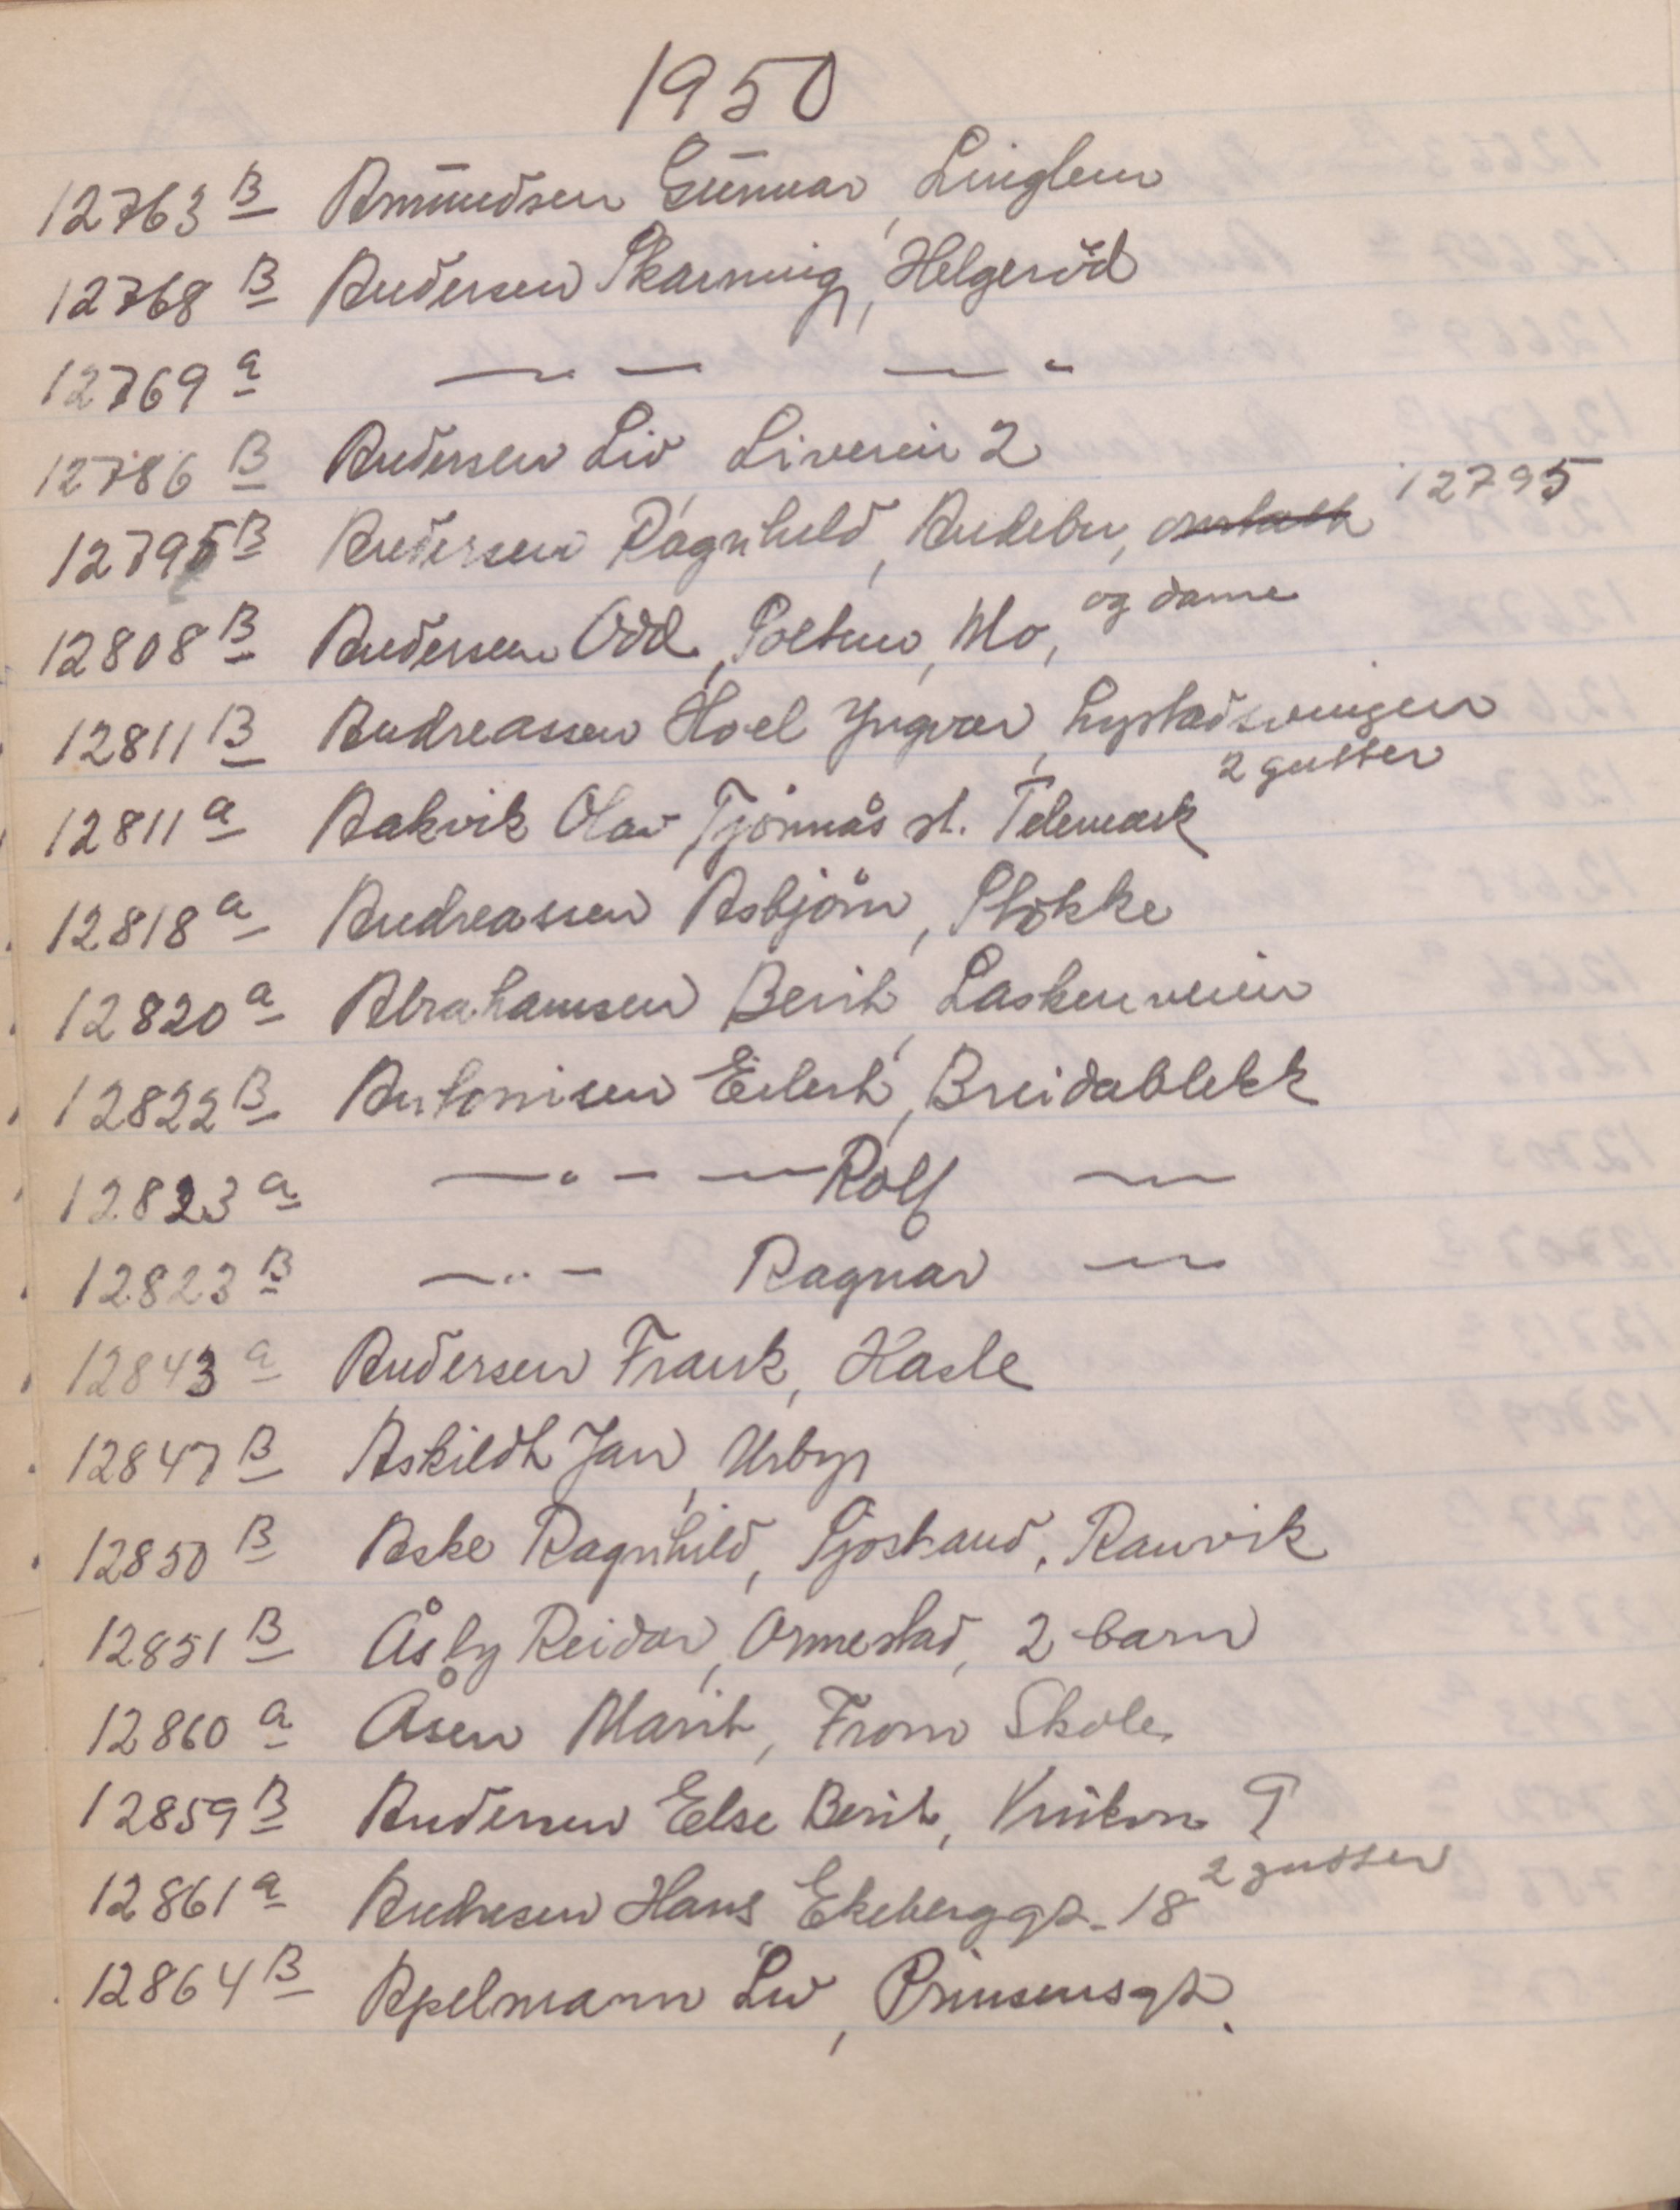 1950
12763 B Amundsen Gunnar, Linglem
12768 B Andersen Skarning, Helgeröd
12769 a — " — — "
12786 B Andersen Liv Liveien 2
12795 B Andersen Ragnhild, Andebu, 12795
12808 B Andersen Odd, Soltun, Mo, og dame
12811 B Andreassen Hoel Yngvar, Lystadsvingen
2 gutter
12811 a Aakvik Olav, Tjönnås st. Telemark
12818 a Andreassen Asbjörn, Stokke
12820 a Abrahamsen Berit, Laskenveien
12822 B Antonisen Eilert, Breidablikk
12823 a — " — — Rolf —
12823 B — " — Ragnar —
12843 a Andersen Frank, Hasle
12847 B Askildt Jan, Urbyr
12850 B Aske Ragnhild, Sjöstrand, Ranvik
12851 B Åsly Reidar, Ormestad, 2 barn
12860 a Åsen Marit, From Skole
12859 B Andersen Else Berit, 9
2 gutter
12861 a Andresen Hans, Ekeberggt. 18
12864 B Apelmann Liv, Prinsensgt.